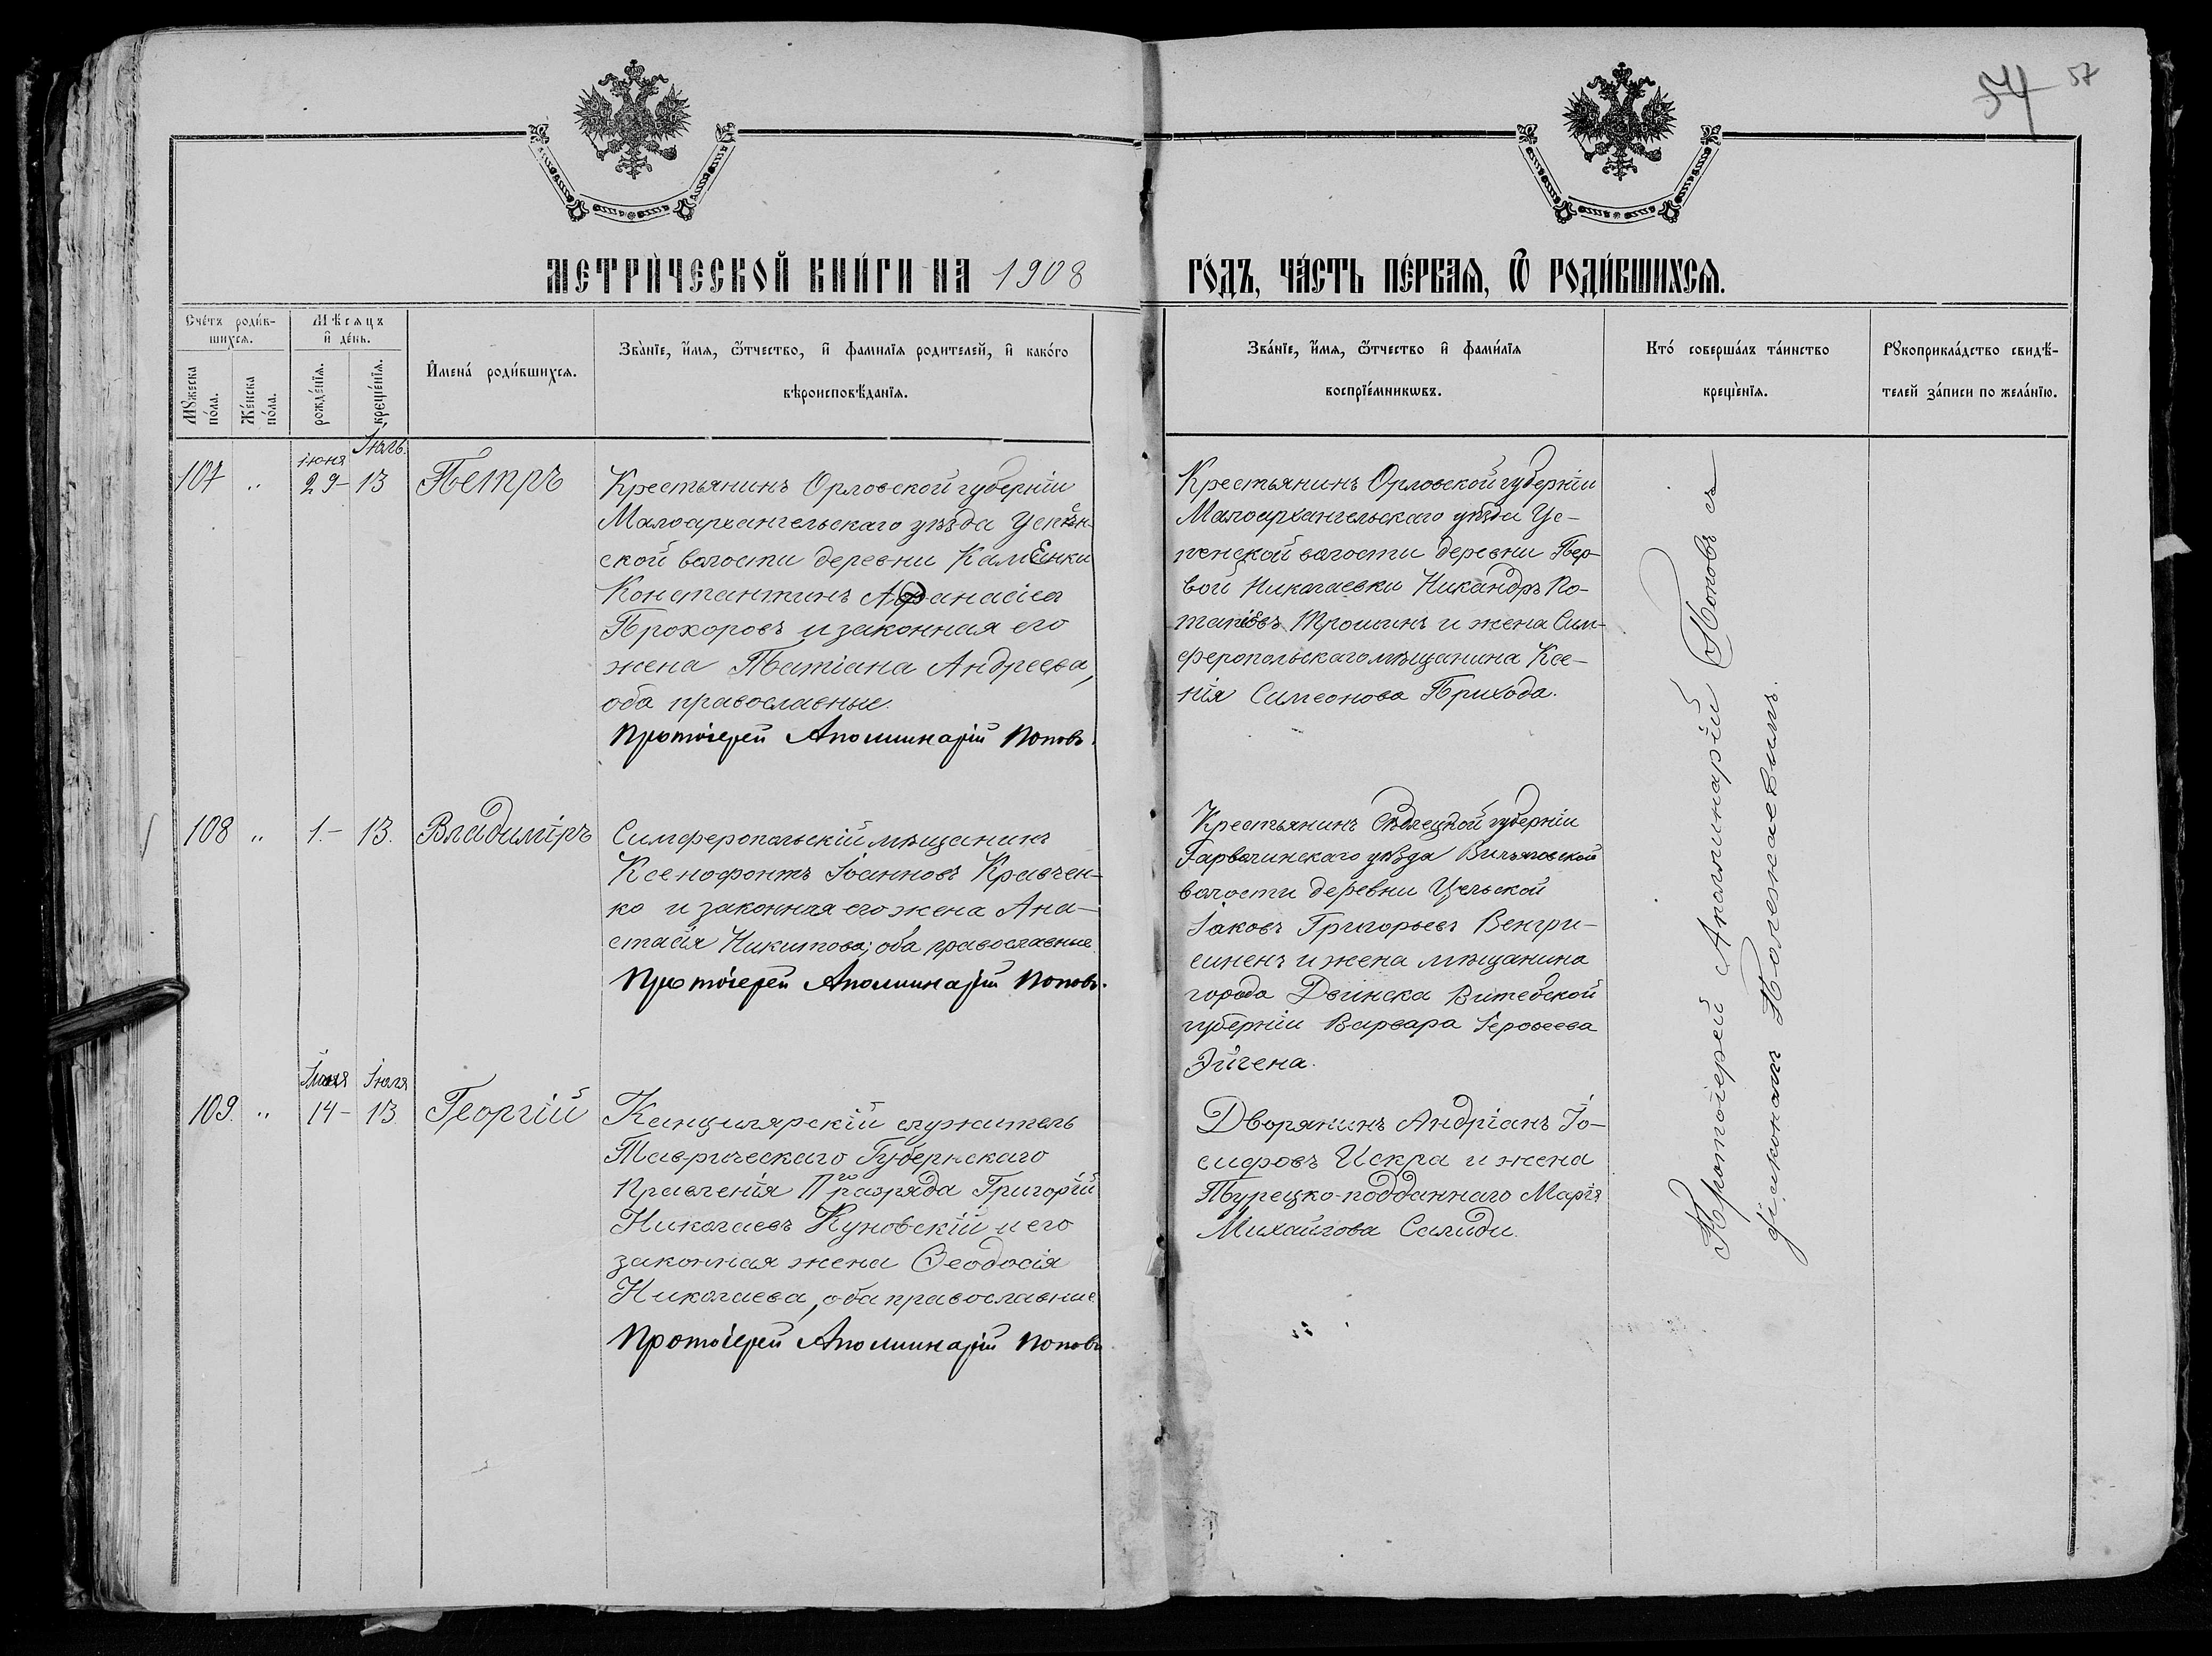 54 57
МЕТРИ́ЧЕСКОЙ КНИ́ГИ НА 1908 ГО́ДЪ, ЧА́СТЬ ПЕ́РВАѦ, Ѿ РОДИ́ВШИХСѦ.
Сче́тъ роди́в-
шихсѧ.
Мꙋ́жеска по́ла.
Же́нска по́ла.
Мѣ́сѧцъ
и҆ де́нь.
рожде́нїѧ.
креще́нїѧ.
И҆мена́ роди́вшихсѧ.
Зва́нїе, и҆́мѧ, ѻ҆́тчество, и҆ фами́лїѧ родителей, и҆ како́го
вѣроисповѣ́данїѧ.
Зва́нїе, и҆́мѧ, ѻ҆́тчество и҆ фами́лїѧ
воспрїе́мникѡвъ.
Кто́ соверша́лъ та́инство
креще́нїѧ.
Рꙋкоприкла́дство свидѣ́-
телей за́писи по жела́нїю.
107 " Іюня 29 - Іюль 13 Петръ
Крестьянинъ Орловской губерніи
Малоархангельскаго уѣзда Успѣн-
ской волости деревни КамЕнки
Константинъ Афанасіев
Прохоровъ и законная его
жена Татіана Андреева,
оба православные.
Протоіерей Аполлинарій Поповъ.
Крестьянинъ Орловской губерніи
Малоархангельскаго уѣзда Ус-
пенской волости деревни Пер-
вой Николаевки Никандръ По-
таповъ Трошинъ и жена Сим-
феропольскаго мѣщанина Ксе-
нія Симеонова Прихода.
108 " 1. - 13. Владиміръ
Симферопольскій мѣщанинъ
Ксенофонтъ Іоанновъ Кравчен-
ко и законная его жена Ана-
стасія Никитова, оба православные
Протоіерей Аполлинарій Поповъ.
Крестьянинъ Сѣдлецкой губерніи
Гарволинскаго уѣзда
волости деревни Цельской
Іаковъ Григорьевъ Венгри-
синенъ и жена мѣщанина
города Двинска Витебской
губерніи Варвара Іерофеева
Эйчена.
109. " Іюня 14 - Іюля 13. Георгій
Канцелярскій служитель
Таврическаго Губернскаго
Правленія II го разряда Григорій
Николаевъ Куновскій и его
законная жена Ѳеодосія
Николаева, оба православные
Протоіерей Аполлинарій Поповъ
Дворянинъ Андріанъ Іо-
сифовъ Искра и жена
Турецко-подданнаго Марія
Михайлова Салиди.
Протоіерей Аполлинарій Поповъ съ
діакономъ Полежаевымъ.